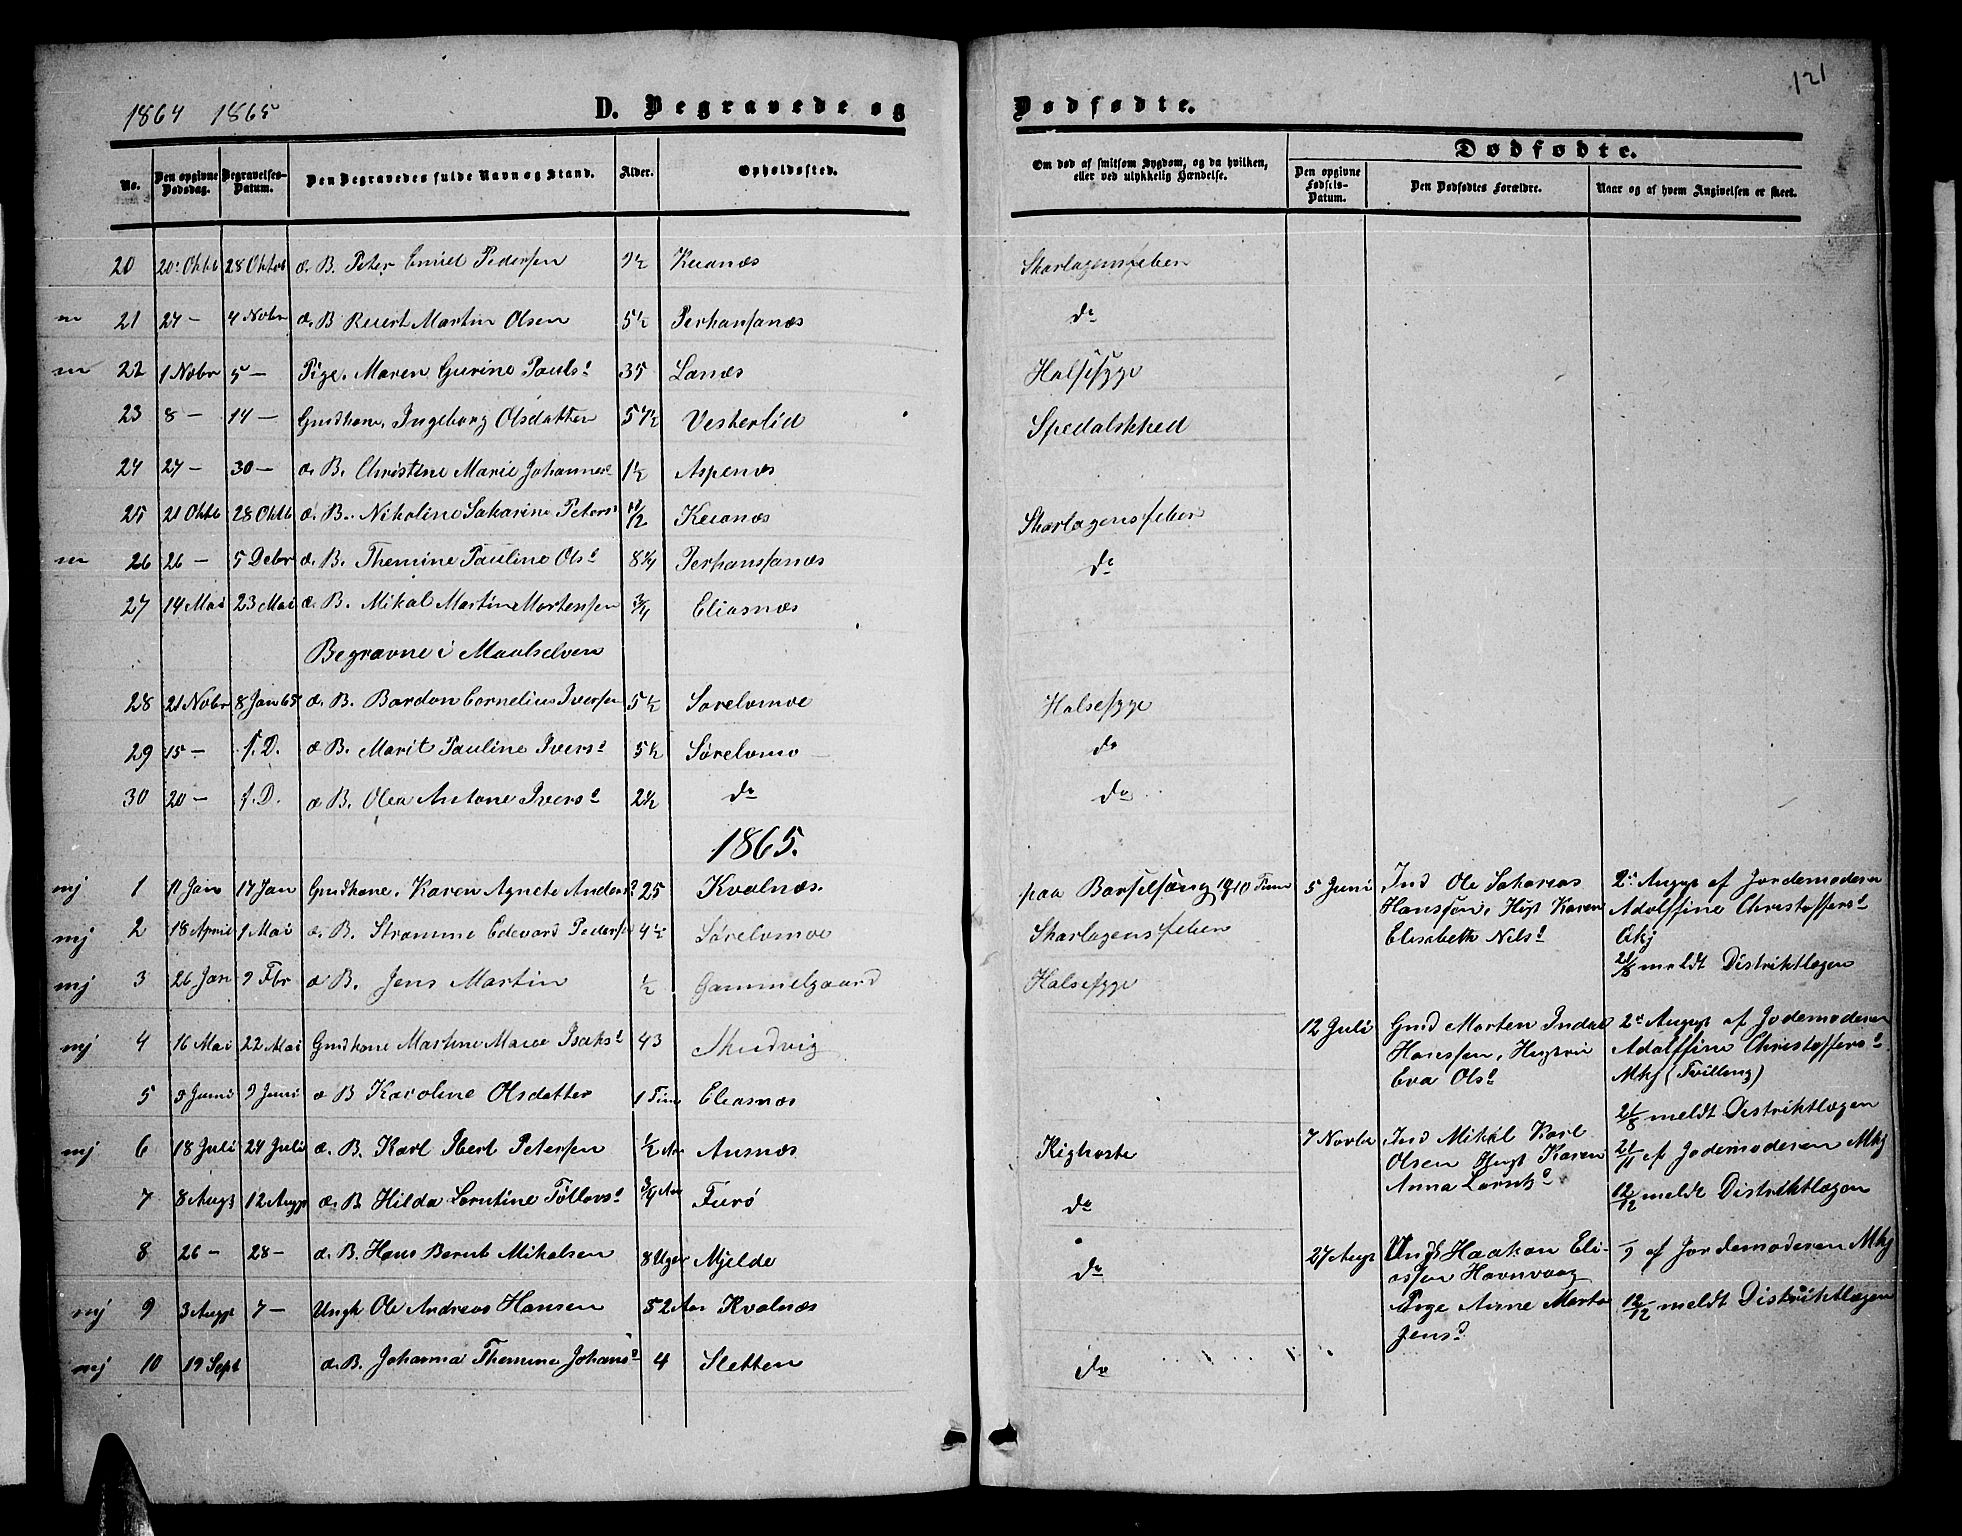 1864 1865
D. Begravede og
Dødfødte.
121
No.
Den opgivne Dødsdag.
Begravelses-Datum.
Den Begravedes fulde Navn og Stand.
Alder.
Opholdssted.
Om død af smitsom Sygdom, og da hvilken, eller ved ulykkelig Hændelse.
Dødfødte.
Den opgivne Fødsels-Datum.
Den Dødfødtes Forældre.
Naar og af hvem Angivelsen er skeet.
20 20' Oktb 28 Oktob d. B. Peter Emiel Pedersen 9½ Keianæs Skarlagensfeber
m 21 27 — 4 Novbr d. B Reiert Martin Olsen 5½ Perhansanæs do
m 22 1 Novbr 5 — Pige. Maren Gurine Pauls d 35 Lanæs Halssyge
23 8 — 14 — Gmdkone, Ingeborg Olsdatter 57½ Vesterlid Spedalskhed
24 27 — 30 — d. B. Christine Marie Johannesd 1½ Aspenæs
25 21 Oktb 28 Oktb d. B. Nikoline Sakarine Peters d Keianæs Skarlagensfeber
m 26 26 — 5 Debr d. B. Themine Pauline Ols d 8¼ Perhansanæs do
27 14 Mai 23 Mai d. B. Mikal Martin Mortensen ¾ Eliasnæs
Begravne i Maalselven
28 21 Novbr 8 Jan 65 d. B. Bardon Cornelius Iversen 5½ Sørelvmoe Halsesyge
29 15 — s. D. d B. Marit Pauline Ivers d 5½ Sørelvmo do
30 20 — s. D. d B. Olea Antone Ivers d 2½ do do
1865.
mj 1 11 Jan 17 Jan Gmdkone, Karen Agnete Anders d 25 Kvalnæs. paa Barselsæng
mj 2 18 April 1 Mai d. B. Strømme Edevard Pedersen 4½ Sørelvmoe Skarlagensfeber
mj 3 26 Jan 9 Fbr d B. Jens Martin ½ Gammelgaard Halsesyge
mj 4 16 Mai 22 Mai Gmdkone Martine Marie Isaks d 43 Skudvig
5 9 Juni 9 Juni d B Karoline Olsdatter 1 Time Eliasnæs
mj 6 18 Juli 24 Juli d. B. Karl Ibert Petersen ½ Aar Ausnæs Kighoste
7 8 Augs 12 Augs d. B. Hilda Lorntine Tollevs d ¾ Aar Furø do
8 26 — 28 — d. B. Hans Bernt Mikalsen 8 Uger Mjelde do
mj 9 3 Augs 7 — Ungk Ole Andreas Hansen 52 Aar Kvalnæs
mj 10 19 Sept d. B. Johanna Themine Johans d 4 Sletten do
5 Juni Ind Ole Sakarias 2' Augs af Jordemoderen
Hanssen, Hust Karen Adolffine Christoffers d
Elisabeth Nils d Qkj
21/8 meldt Distriktlægen
12 Juli Gmd Morten Indal 2' Augs af Jodemoderen
Hanssen, Hustru Adolffine Christoffers d
Eva Ols d Mkj (Tvilling)
21/8 meldt Distriktlægen
7 Novbr Ind Mikal Karl 21/11 af Jodemoderen Mkj
Olsen Hust Karen
Anna Lornts d 12/12 meldt Distriktlægen
27 Augs Ungk Haakon Eli- af Jordemoderen Mkj
assen Havnvaag
Pige Anne Marta 12/12 meldt Distriktlægen
Jens d